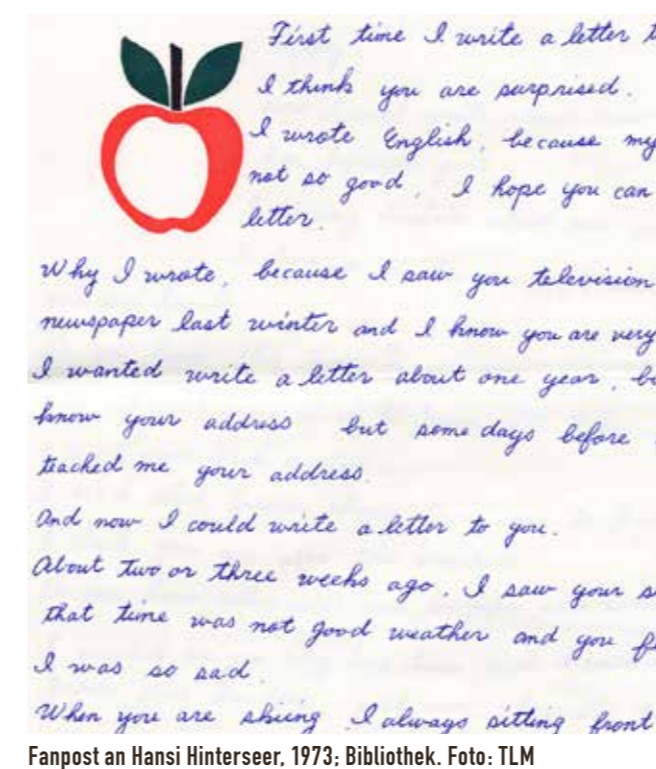 First time I write a letter t
I think you are surprised.
I wrote English, because my
not so good, I hope you can
letter.
Why I wrote, because I saw you television
newspaper last winter and I know you are very
I wanted write a letter about one year, b
know your address but some days before
teached me your address.
And now I could write a letter to you.
About two or three weeks ago, I saw your s
that time was not good weather and you f
I was so sad.
When you are skiing I always sitting front
Fanpost an Hansi Hinterseer, 1973; Bibliothek. Foto: TLM